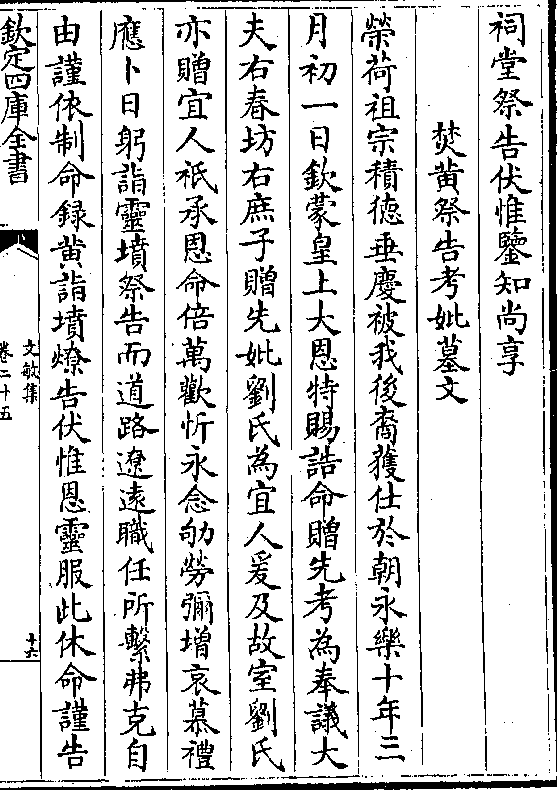 祠堂祭告伏惟鑒知尚享
焚黄祭告考妣墓文
榮荷祖宗積德垂慶被我後裔獲仕於朝永樂十年三
月初一日欽蒙皇上大恩特賜誥命贈先考為奉議大
夫右春坊右庶子贈先妣劉氏為宜人爰及故室劉氏
亦贈宜人祇承恩命倍萬歡忻永念劬勞彌增哀慕禮
應卜日躬詣靈墳祭告而道路遼遠職任所繫弗克自
由謹依制命録黄詣墳燎告伏惟恩靈服此休命謹告
欽定四庫全書
文敏集
卷二十五
十六